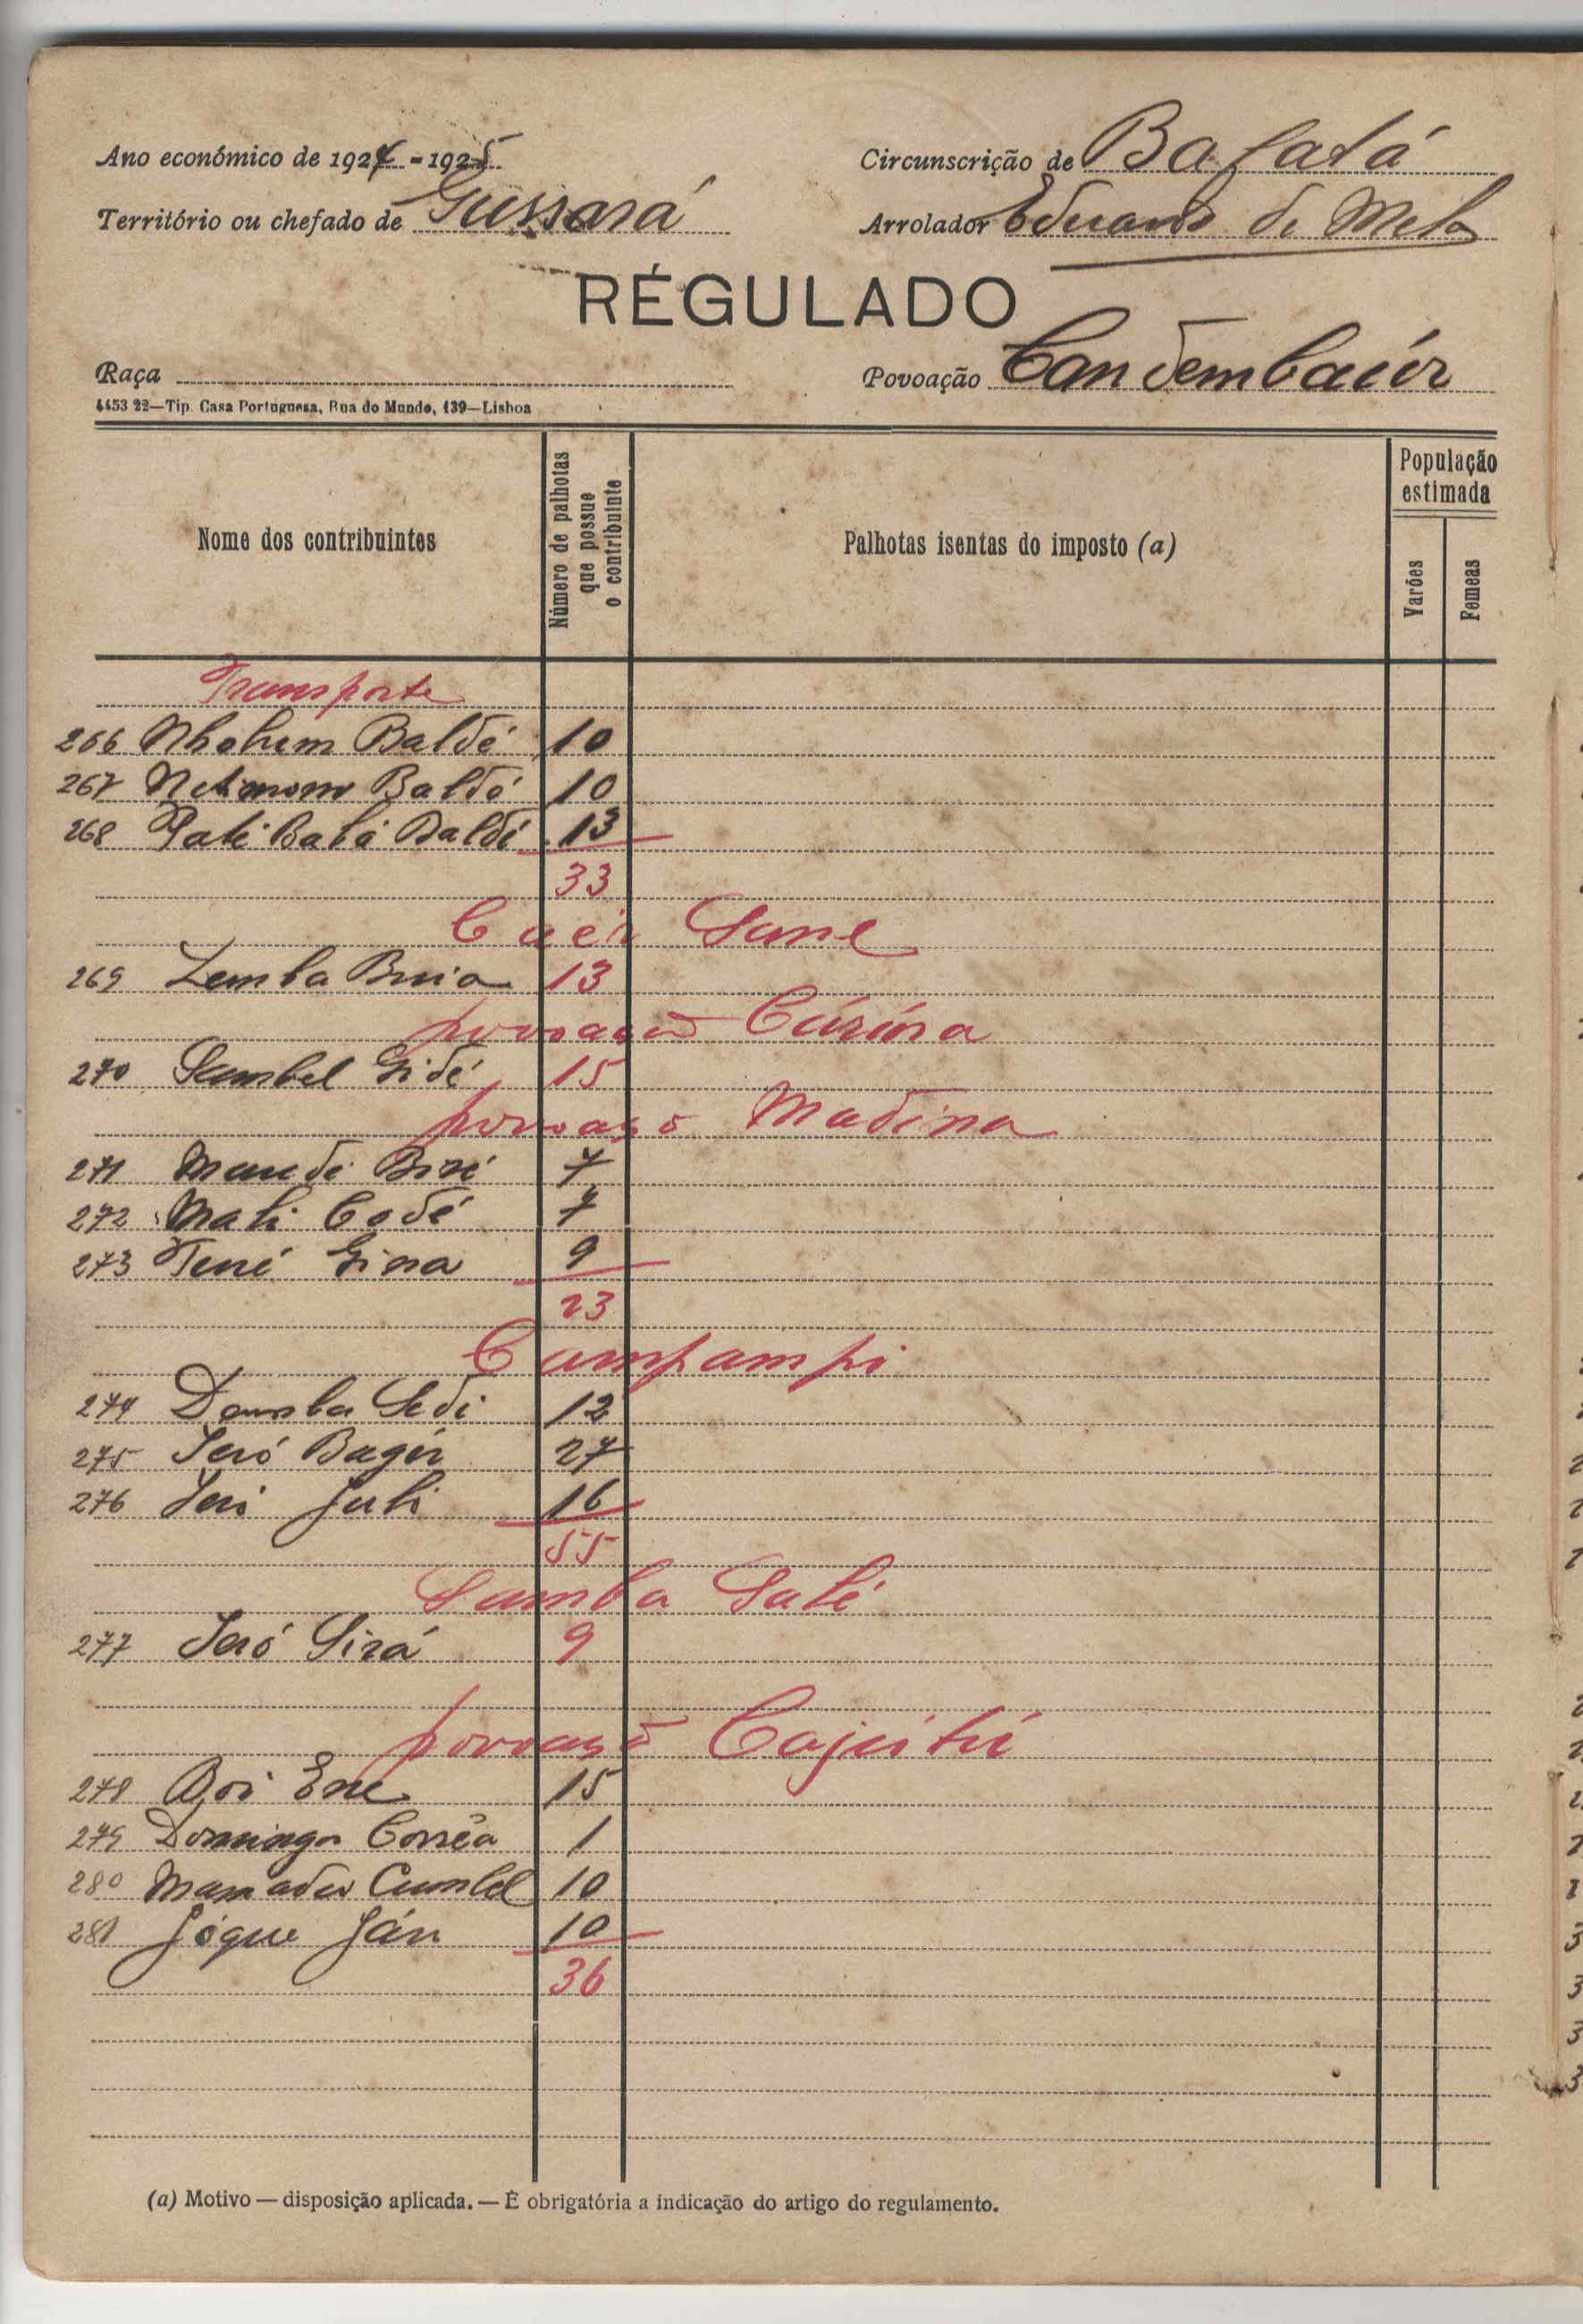 Ano económico de 1924-1925
Circunscrição de Bafatá
Território ou chefado de Gussará
Arrolador Eduardo de Melo
RÉGULADO
Raça
Povoação Candembaiúr
4453 22—Tip. Casa Portuguesa, Rua do Mundo, 139—Lisboa
Nome dos contribuintes
Número de palhotas que possue o contribuinte
Palhotas isentas do imposto (a)
População estimada
Varões
Femeas
Transporte
266 Baldé 10
267 Baldé 10
268 Paté Babá Baldé 13
33
Sane
269 13
povoação
270 Sambel Gidé 15
povoação Madina
271 7
272 Mali Codé 7
273 Tené 9
23
Campampi
274 Demba Sedi 12
275 27
276 Juli 16
55
Samba Saté
277 Seró Sirá 9
povoação
278 15
279 Domingos Corrêa 1
280 Mamadu Cumbel 10
281 10
36
(a) Motivo — disposição aplicada. — É obrigatória a indicação do artigo do regulamento.